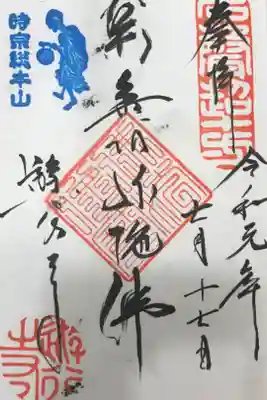 奉拝
令和元年
七月十七日
南無阿弥陀佛
時宗総本山
遊行寺